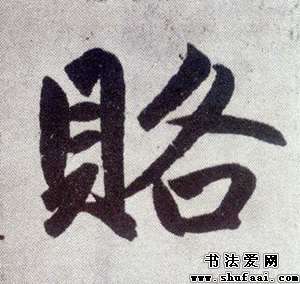 賂
书法爱网
www.shufaai.com